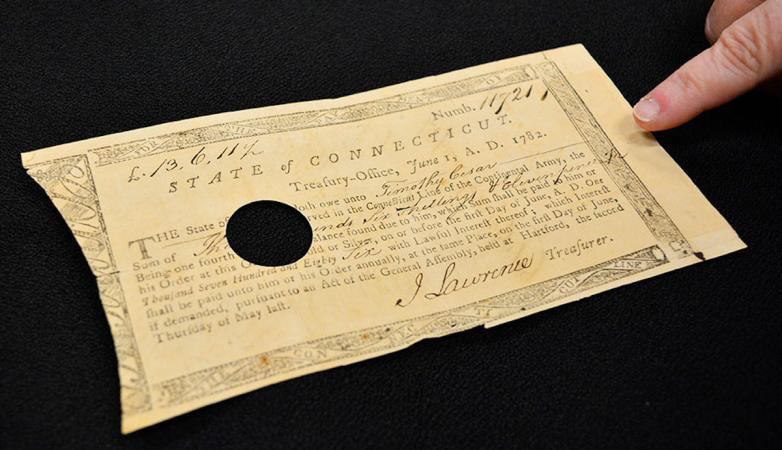 Numb. 11721
£. 13. 6. 11 1/2
STATE of CONNECTICUT.
Treasury-Office, June 1, A. D. 1782.
THE State of doth owe unto Timothy Cesar
served in the Connecticut Line of the Continental Army, the
Sum of Pounds Six Shillings & Eleven pence
Being one fourth lance found due to him, which Sum shall be paid to him or
his Order at this Office Gold or Silver, on or before the first Day of June, A. D. One
Thousand Seven Hundred and Eighty Six with Lawful Interest thereof; which Interest
shall be paid unto him or his Order annually, at the same Place, on the first Day of June,
if demanded, pursuant to an Act of the General Assembly, held at Hartford, the second
Thursday of May last.
J Lawrence Treasurer.
CON NEC TI CUT LINE